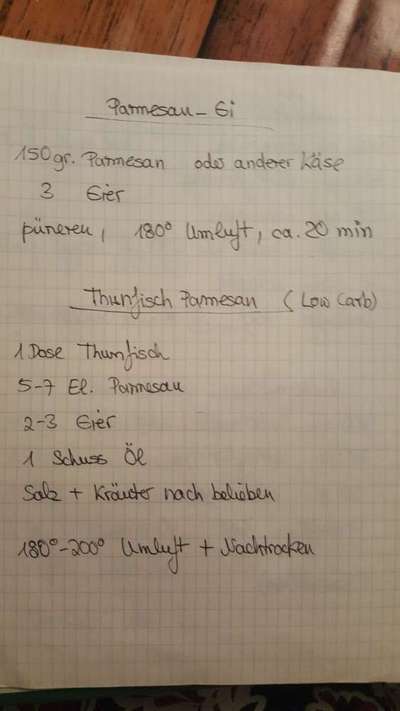 Parmesan-Ei
150gr. Parmesan oder anderer Käse
3 Eier
pürieren, 180° Umluft, ca. 20 min
Thunfisch Parmesan (Low Carb)
1 Dose Thunfisch
5-7 El. Parmesan
2-3 Eier
1 Schuss Öl
Salz + Kräuter nach belieben
180°-200° Umluft + Nachtrocken